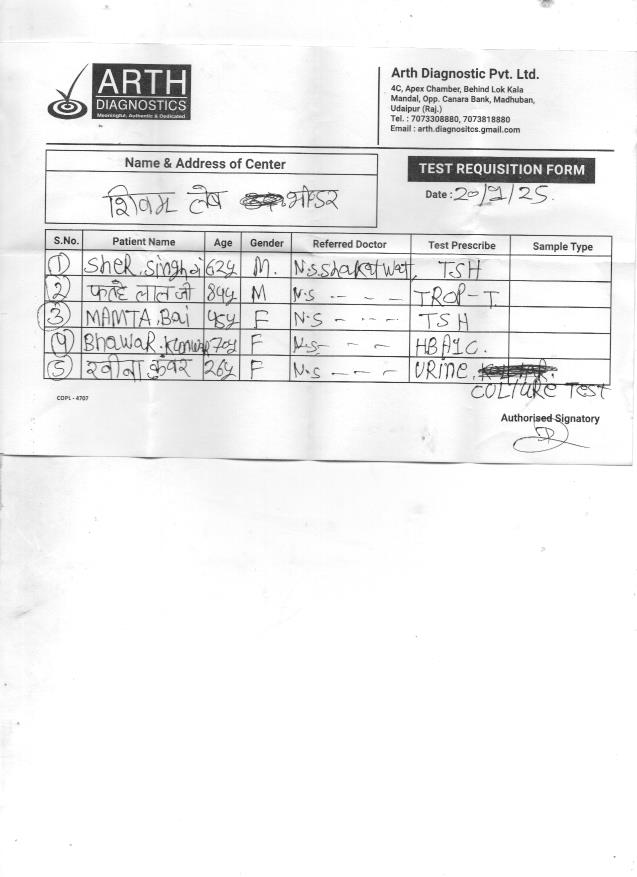 ARTH
DIAGNOSTICS
Meaningful, Authentic & Dedicated
Arth Diagnostic Pvt. Ltd.
4C, Apex Chamber, Behind Lok Kala
Mandal, Opp. Canara Bank, Madhuban,
Udaipur (Raj.)
Tel. : 7073308880, 7073818880
Email : arth.diagnositcs.gmail.com
Name & Address of Center
TEST REQUISITION FORM
शिवम लेब
Date : 20/9/25
S.No. Patient Name Age Gender Referred Doctor Test Prescribe Sample Type
1 SHeR. Singh ji 62y M. N.S.Shaktawat TSH
2 फतेह लाल जी 84y M N.S - - - TROP-T.
3 MAMTA, Bai 45y F N.S - - - TSH
4 BHaWaR. Kunwar 70y F N.S - - - HBA1C.
5 रवीना कुंवर 26y F N.S - - - URine.
COLTURe TeST
CDPL - 4707
Authorised Signatory